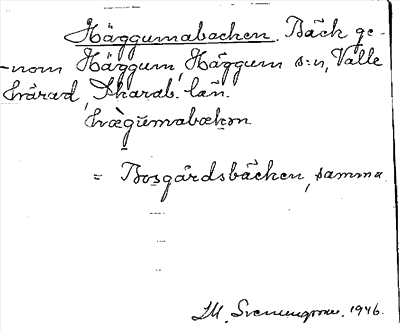 Häggumabacken. Bäck ge-
nom Häggum, Häggum s:n, Valle
härad, Skarab. län.
hæ̀gŭmabækən
= Bosgårdsbäcken, samma
M. 1946.